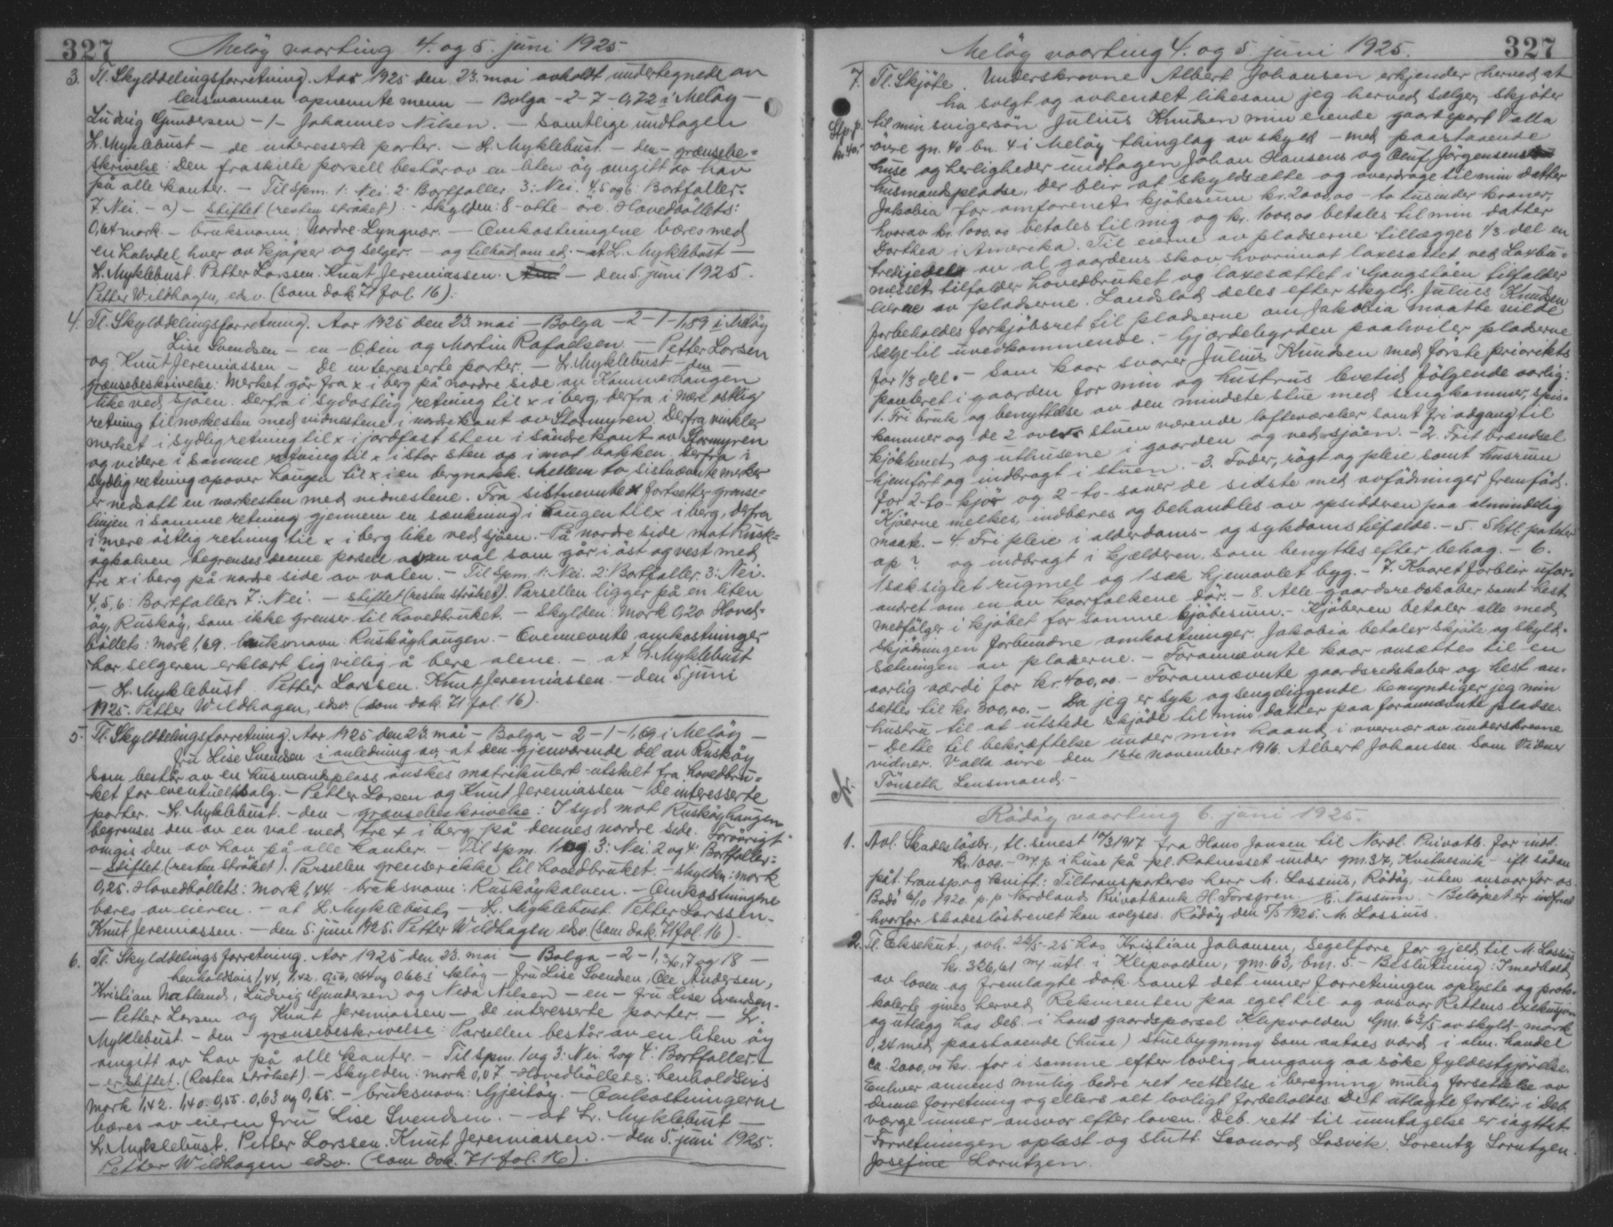 327
Meløy vaarting 4. og 5. juni 1925
3. Tl. Skylddelingsforretning. Aar 1925 den 23. mai avholdt undertegnede av
lensmannen opnevnte menn - Bolga - 2 - 7 - 0,72 i Meløy -
Ludvig Gundersen - 1 - Johannes Nilsen. - Samtlige undtagen
L. Myklebust - de interesserte parter. - H. Myklebust - den - grænsebe=
skrivelse: Den fraskilte parsell består av en liten øy omgitt av hav
på alle kanter. - Til spm. 1: Nei. 2: Bortfaller. 3: Nei. 4, 5 og 6: Bortfaller.
7 Nei. - a) - stiftet (resten strøket) - Skylden: 8 - otte - øre. Hovedbøllets:
0,64 mark - bruksnavn: Nordre Lyngvær. - Omkostningene bæres med
en halvdel hver av kjøper og selger. - og tilbød om ed: - at L. Myklebust -
L. Myklebust. Petter Larssen. Knut Jeremiassen. - den 5. juni 1925.
Petter Wildhagen, edsv. (som dok. 71 fol. 16).
4. Tl. Skylddelingsforretning. Aar 1925 den 23. mai - Bolga - 2 - 1 - 1,89 i Meløy
Lise Svendsen - en - Odin og Martin Rafaelsen - Petter Larsen
og Knut Jeremiassen - De interesserte parter. - L. Myklebust - den -
grænsebeskrivelse: Merket går fra x i berg på nordre side av Kammerhaugen
like ved sjøen. Derfra i sydøstlig retning til x i berg, derfra i mere østlig
retning til merkesten med vidnestene i nordre kant av Stormyren. Derfra vinkler
merket i sydlig retning til x i jordfast sten i søndre kant av Stormyren
og videre i samme retning til x i stor sten op i mot bakken. Derfra i
sydlig retning opover haugen til x i en bergnakk. Mellem to sistnævnte merker
er nedsatt en merkesten med vidnestene. Fra sistnevnte x fortsetter grænse=
linjen i samme retning gjennem en sænkning i haugen til x i berg, derfra
i mere østlig retning til x i berg like ved sjøen. - På nordre side mot Rusk=
øykalven begrenses denne parsell av en val som går i øst og vest med
tre x i berg på nordre side av valen. - Til spm. 1: Nei. 2: Bortfaller. 3: Nei.
4, 5, 6: Bortfaller. 7: Nei. - stiftet (resten strøket). Parsellen ligger på en liten
øy, Ruskøy, som ikke grenser til hovedbruket. - Skylden: Mark 0,20. Hoved-
bøllets: Mark 1,69. Bruksnavn: Ruskøyhaugen. - Ovennevnte omkostninger
har selgeren erklært sig villig å bere alene. - at L. Myklebust
- L. Myklebust. Petter Larssen. Knut Jeremiassen. - den 5. juni
1925. Petter Wildhagen, edsv. (som dok. 71 fol. 16).
5. Tl. Skylddelingsforretning. Aar 1925 den 23. mai - Bolga - 2 - 1 - 1,69 i Meløy -
fru Lise Svendsen i anledning av, at den gjenværende del av Ruskøy
som består av en husmannsplass ønskes matrikulert - utskilt fra hovedbru=
ket for eventuelt salg. - Petter Larsen og Knut Jeremiassen - De interesserte
parter. - L. Myklebust. - den - grænsebeskrivelse: I syd mot Ruskøyhaugen
begrenses den av en val med tre x i berg på dennes nordre side. Forøvrigt
omgis den av hav på alle kanter. - Til spm. 1 og 3: Nei. 2 og 4: Bortfaller. =
- stiftet (resten strøket). Parsellen grenser ikke til hovedbruket. - skylden: mark
0,25. Hovedbøllets: mark 1,44 - bruksnavn: Ruskøykalven. - Omkostningene
bæres av eieren. - at L. Myklebust, - L. Myklebust. Petter Larssen.
Knut Jeremiassen. - den 5. juni 1925. Petter Wildhagen edsv. (som dok. 71 fol. 16).
6. Tl. Skylddelingsforretning. Aar 1925 den 23. mai - Bolga - 2 - 1, 7 og 18 -
henholdsvis 1,44, 1,42, 0,56, 0,64 og 0,66 i Meløy - fru Lise Svendsen, Ole Andersen,
Kristian Natland, Ludvig Gundersen og Neda Nilsen - en - fru Lise Svendsen.
- Petter Larsen og Knut Jeremiassen - De interesserte parter. - L.
Myklebust - den - grænsebeskrivelse: Parsellen består av en liten øy
omgitt av hav på alle kanter. - Til spm. 1 og 3: Nei. 2 og 4: Bortfaller. -
- er stiftet. (Resten strøket) - Skylden: mark 0,07 - Hovedbøllets: henholdsvis
Mark 1,42. 1,40. 0,55. 0,63 og 0,65. - bruksnavn: Gjeitøy. - Omkostningerne
bæres av eieren fru Lise Svendsen. - at L. Myklebust -
L. Myklebust. Petter Larssen. Knut Jeremiassen. - den 5. juni 1925.
Petter Wildhagen edsv. (som dok. 71 fol. 16).
Meløy vaarting 4. og 5. juni 1925.
327
7. Tl. Skjøte. Underskrevne Albert Johansen erkjender herved at
ha solgt og avhendet likesom jeg herved sælger, skjøter
til min svigersøn Julius Knudsen min eiende gaardepart Valla
øvre gn. 40 bn. 4 i Meløy thinglag av skyld - med paastaaende
huse og herligheder undtagen Johan Hansens og Oluf Jørgensens
husmandspladse, der blir at skyldsætte og overdrage til min datter
Jakobia for omforenet kjøbesum kr. 2000,00 - to tusinder kroner,
hvorav kr. 1000,00 betales til mig og kr. 1000,00 betales til min datter
Dorthea i Amerika. Til eierne av pladserne tillægges 1/3 del en
tredjedel av al gaardens skov hvorimot laxesættet ved Laxbu=
nesset tilfalder hovedbruket og laxesættet i Gangstøen tilfalder
eierne av pladserne. Landslod deles efter skyld. Julius Knudsen
forbeholdes forkjøbsret til pladserne om Jakobia maatte ville
sælge til uvedkommende. - Gjærdebyrden paahviler pladserne
for 1/3 del. - Som kaar svarer Julius Knudsen med første prioritets
panteret i gaarden for min og hustrus levetid følgende aarlig:
1. Fri bruk og benyttelse av den mindste stue med sengkammer, spis=
kammer og de 2 over stuen værende loftsværelser samt fri adgang til
kjøkkenet og uthusene i gaarden og ved sjøen. - 2. Frit brændsel
hjemført og indbragt i stuen. - 3. Foder, røgt og pleie samt husrum
for 2 - to - kjør og 2 - to - sauer de sidste med avfødninger fremfød.
Kjøerne melkes, indbæres og behandles av opsidderen paa almindelig
maate. - 4. Fri pleie i alderdoms- og sygdomstilfælde. - 5. 5 htl. poteter
op? og indbragt i kjælderen som benyttes efter behag. - 6.
1 sæk sigtet rugmel og 1 sæk hjemavlet byg. - 7. Kaaret forblir ufor=
andret om en av kaarfolkene dør. - 8. Alle gaardsredskaber samt hest
medfølger i kjøbet for samme kjøbesum. - Kjøberen betaler alle med
skjødningen forbundne omkostninger. Jakobia betaler skjøte og skyld=
sætningen av pladserne. - Forannævnte kaar ansættes til en
aarlig værdi for kr. 400,00. - Forannævnte gaardsredskaber og hest an=
sættes til kr. 300,00. - Da jeg er syk og sengeliggende bemyndiger jeg min
hustru til at utstede skjøde til min datter paa forannævnte pladse.
- Dette til bekræftelse under min haand i overvær av underskrevne
vidner. Valla øvre den 15de november 1916. Albert Johansen. Som Vidner
Tønseth Lensmand. -
Rødøy vaarting 6. juni 1925.
1. Avl. Skadesløsbr., tl. senest 10/3 1917 fra Hans Jansen til Nordl. Privatb. for indt.
kr. 1000.- m/ p. i huse på pl. Ratneset under gn. 37, Kvalnesvik - eft. sådan
påt. transp. og kvitt.: Tiltransporteres herr M. Lassius, Rødøy, uten ansvar for os.
Bodø 6/10 1920. p. p. Nordlands Privatbank H. Forsgren. E. Nossum. - Beløpet er indfriet
hvorfor skadesløsbrevet kan avlyses. Rødøy den 6/5 1925. M. Lassius.
2. Tl. Eksekut., avh. 26/5-25 hos Kristian Johansen, Segelfore for gjeld til M. Lassius
kr. 326,61 m/ utl. i Klipvolden, gn. 63, bn. 5. - Beslutning: I medhold
av loven og fremlagte dok. samt det under forretningen oplyste og proto-
kolerte gives herved Rekvirenten paa eget til og ansvar Rettens exekusjon
og utlæg hos Deb. i hans gaardsparsel Klipvolden Gnr. 63/5 av skyld - mark
0,24 med paastaaende (huse) stuebygning som antaes værd i alm. handel
ca. 2000,00 kr. for i samme efter lovlig omgang aa søke fyldestgjørelse.
Enhver annens mulig bedre ret rettelse i beregning mulig forsettelse av
denne forretning og ellers alt lovligt forbeholdes. Det utlagte forblir i Deb.
værge under ansvar efter loven. Deb. rett til unntagelse er iagttat.
- Forretningen oplæst og slutt. Leonard Løsvik. Lorentz Lorntzen.
Josefine Lorntzen.